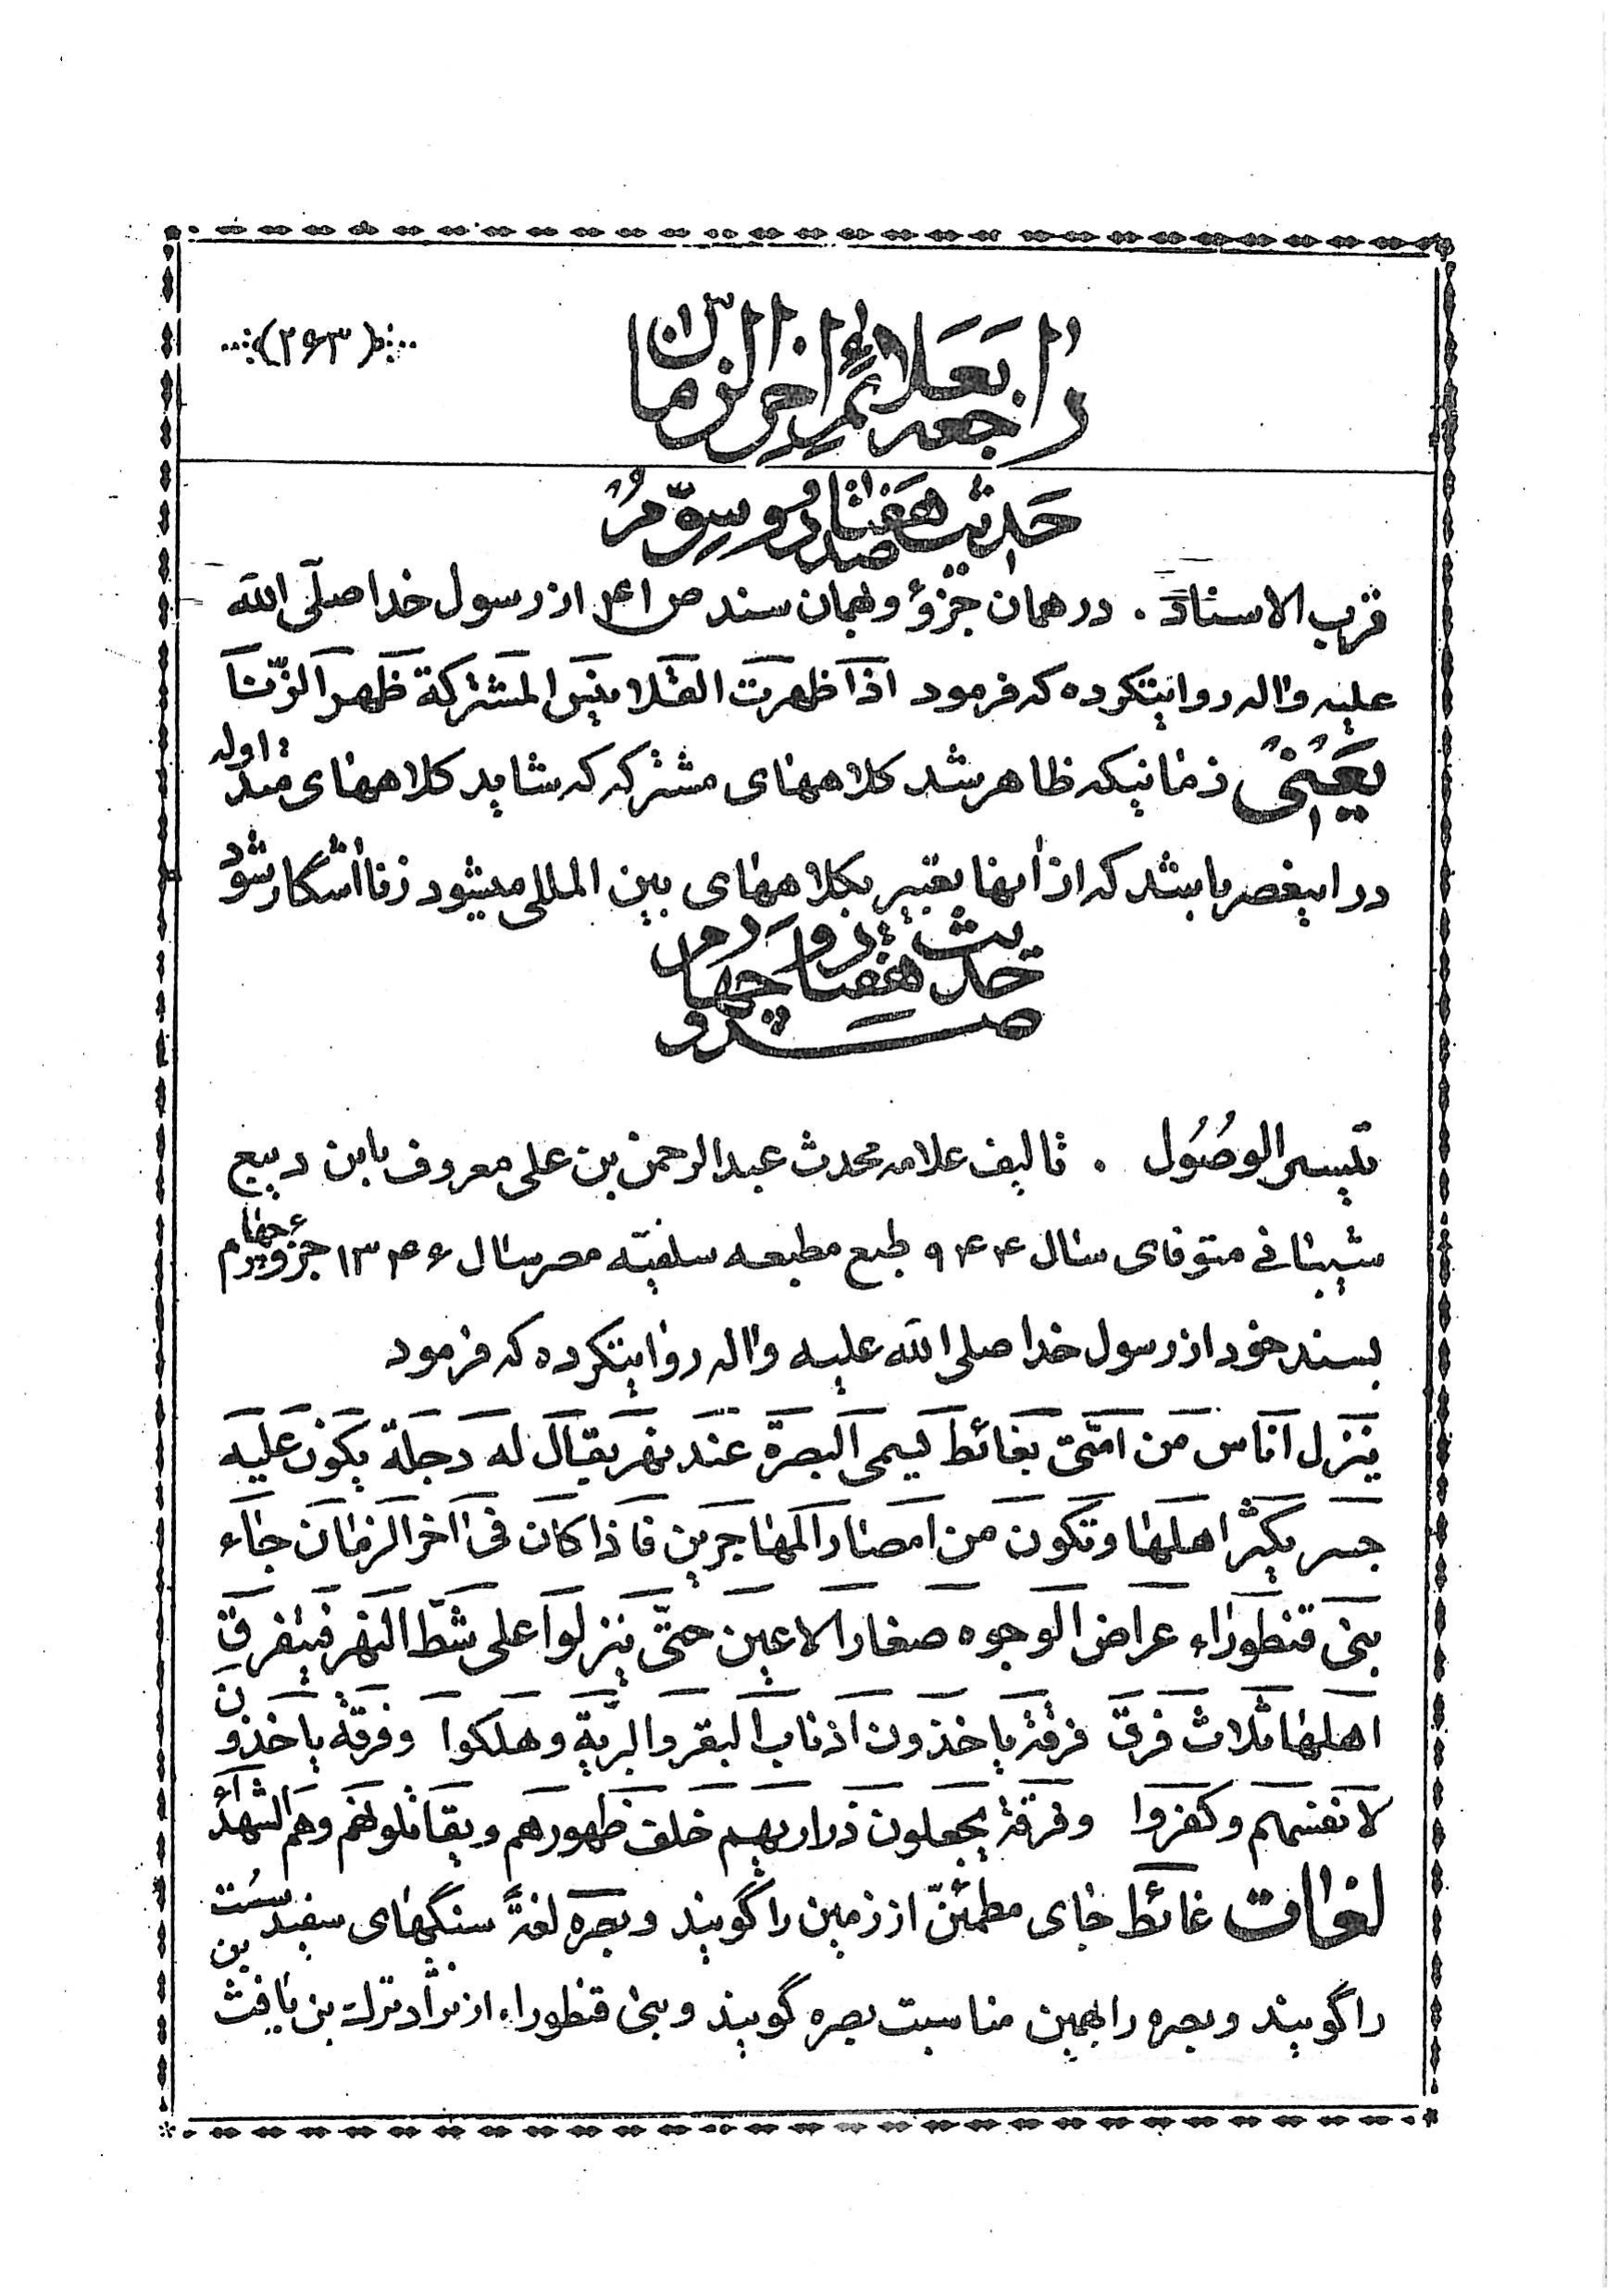 (۲۶۳)
راجعه بعلائم آخر الزمان
حدیث هفتصد و سوّم
قرب الاسناد . در همان جزؤ و بهمان سند ص ۴۱ از رسول خدا صلّی الله
علیه واله روایتکرده که فرمود اذا ظهرت القلانیس المشترکة ظهر الزّنا
یعنی زمانیکه ظاهر شد کلاههای مشترکه که شاید کلاههای متداوله
در اینعصر باشد که از آنها تعبیر بکلاههای بین المللی میشود زنا آشکار شود
حدیث هفتصد و چهارم
تیسیر الوصُول . تالیف علامه محدث عبدالرحمن بن علی معروف بابن دبیع
شیبانی متوفای سال ۹۴۴ طبع مطبعه سلفیّه مصر سال ۱۳۴۶ جزو چهارم
بسند خود از رسول خدا صلی الله علیه واله روایتکرده که فرمود
ینزل اناس من امتی بغائط یسمی البصرة عند نهر یقال له دجلة یکون علیه
جسر یکثر اهلها وتکون من امصار المهاجرین فاذا کان فی اخر الزمان جاء
بنی قنطوراء عراض الوجوه صغار الاعین حتّی ینزلوا علی شطّ النهر فیتفرق
اهلها ثلاث فرق فرقة یاخذون اذناب البقر والبریّة وهلکوا وفرقة یاخذون
لانفسهم وکفروا وفرقة یجعلون ذراریهم خلف ظهورهم ویقاتلونهم وهم الشهداء
لغات غائط جای مطمئنّ از زمین را گویند و بصره لغةً سنگهای سفید سُست
را گویند و بصره را بهمین مناسبت بصره گویند و بنی قنطوراء از نژاد ترک بن یافث بن